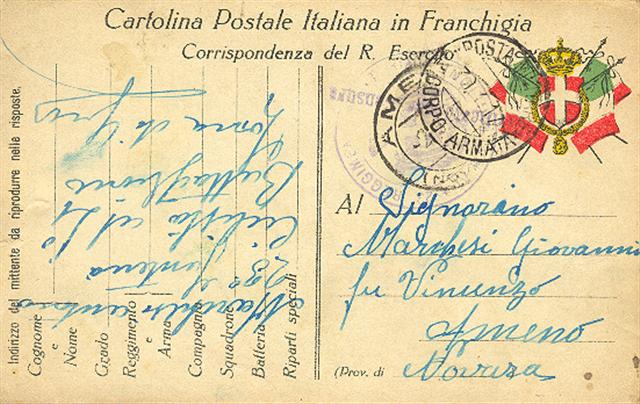 Cartolina Postale Italiana in Franchigia
Corrispondenza del R. Esercito
POSTA
CORPO ARMATA
AMENO
Al Signorino
Marchesi Giovanni
fu Vincenzo
Ameno
(Prov. di Novara
Indirizzo del mittente da riprodurre nelle risposte.
Cognome e Nome
Grado
Reggimento
Arma
Compagnia
Squadrone
Batteria
Riparti speciali
28º
Ciclisti
Battaglione
Zona di